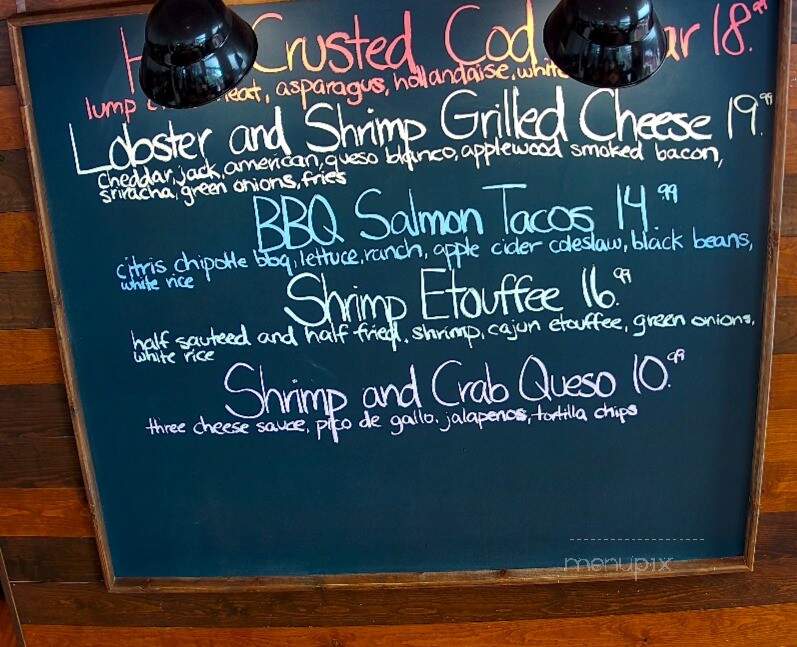 Crusted Cod 18.99
lump asparagus, hollandaise, white
Lobster and Shrimp Grilled Cheese 19.99
cheddar, jack, american, queso blanco, applewood smoked bacon,
sriracha, green onions, fries
BBQ Salmon Tacos 14.99
citris chipotle bbq, lettuce, ranch, apple cider coleslaw, black beans,
white rice
Shrimp Etouffee 16.99
half sauteed and half fried shrimp, cajun etouffee, green onions,
white rice
Shrimp and Crab Queso 10.99
three cheese sauce, pico de gallo, jalapenos, tortilla chips
menupix